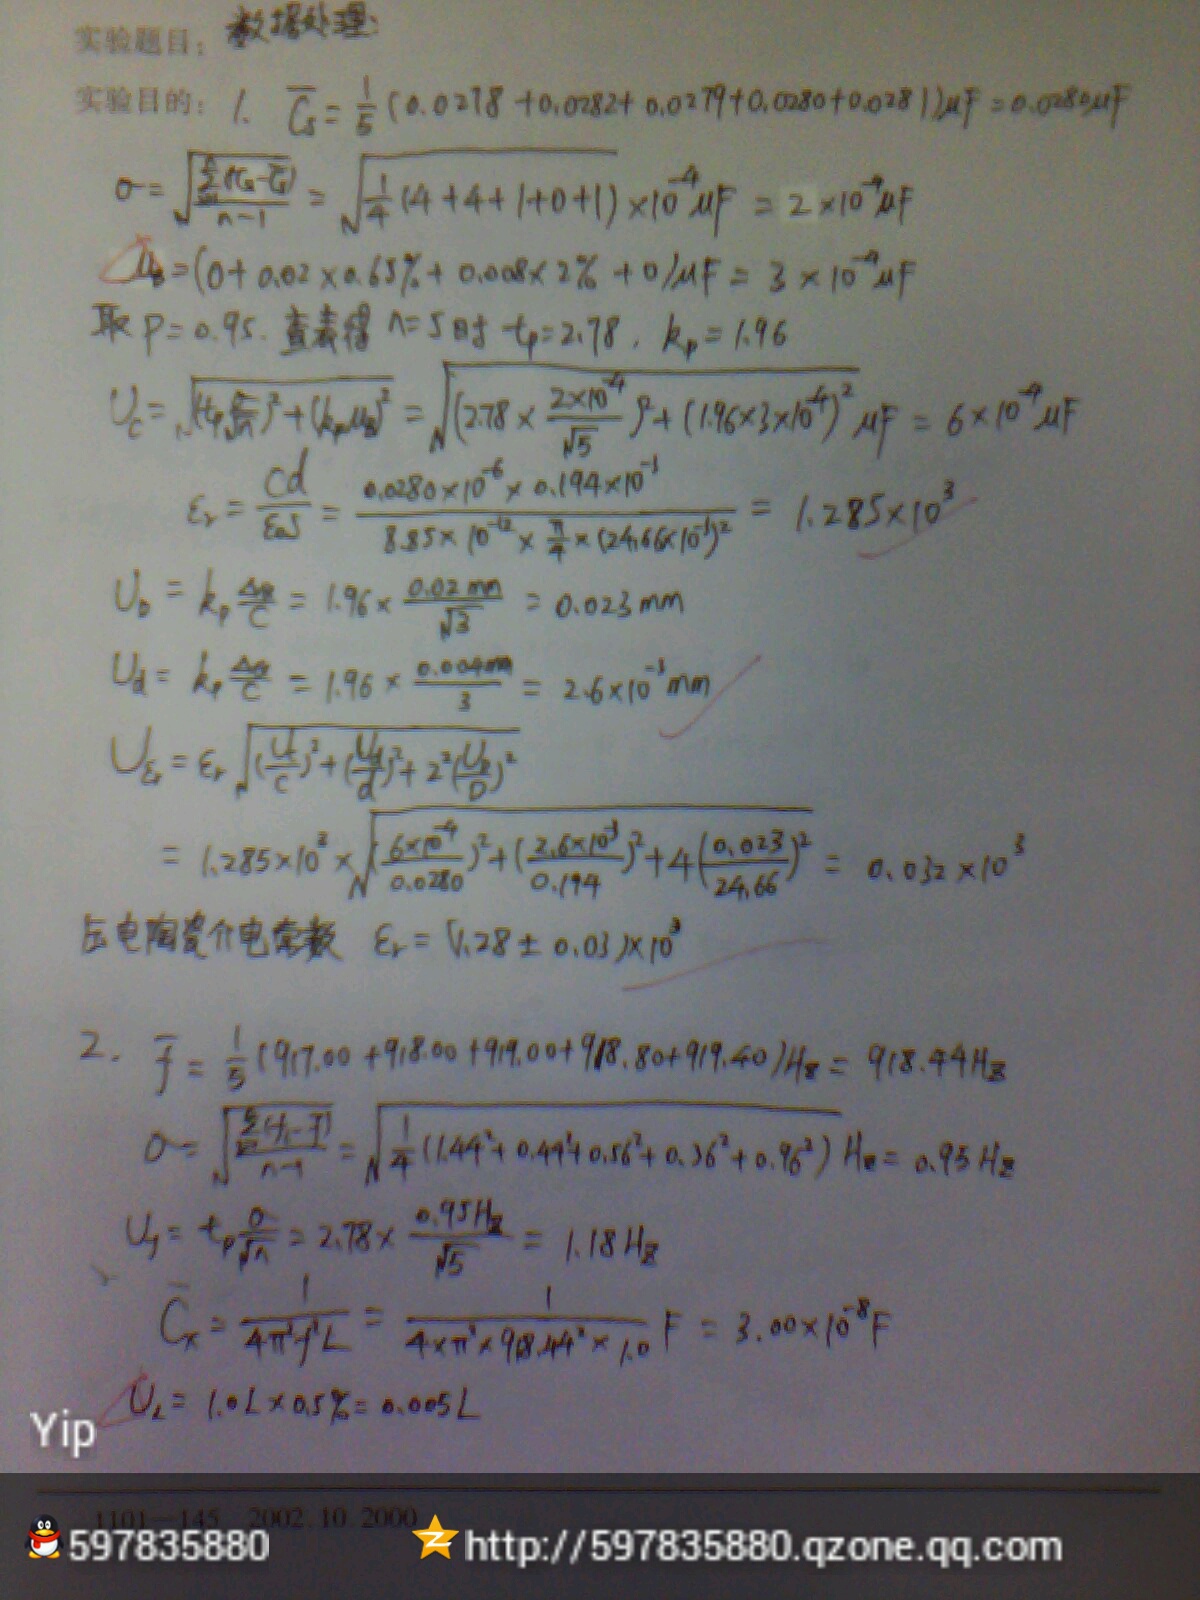 实验题目: 数据处理:
实验目的: 1. C̅s = 1/5 (0.0278+0.0282+0.0279+0.0280+0.0281)μF = 0.0280μF
σ = √(Σ(Cs-C̅s)/(n-1)) = √(1/4 (4+4+1+0+1)) ×10⁻⁴μF = 2×10⁻⁴μF
= (0+0.02×0.65%+0.008×2%+0)μF = 3×10⁻⁴μF
取 P=0.95. 查表得 n=5时 tp=2.78, kp=1.96
Uc = √((tp σ/√n)²+(kp uB)²) = √((2.78×2×10⁻⁴/√5)²+(1.96×3×10⁻⁴)²) μF = 6×10⁻⁴μF
εr = Cd/ε₀S = 0.0280×10⁻⁶×0.194×10⁻³/(8.85×10⁻¹²×π/4×(24.66×10⁻³)²) = 1.285×10³
UD = kp Δ/C = 1.96×0.02mm/√3 = 0.023mm
Ud = kp Δ/C = 1.96×0.004mm/3 = 2.6×10⁻³mm
Uεr = εr √((Uc/C)²+(Ud/d)²+2²(UD/D)²)
= 1.285×10³×√((6×10⁻⁴/0.0280)²+(2.6×10⁻³/0.194)²+4(0.023/24.66)²) = 0.032×10³
压电陶瓷介电常数 εr=(1.28±0.03)×10³
2. f̅ = 1/5 (917.00+918.00+919.00+918.80+919.40)Hz = 918.44Hz
σ = √(Σ(fi-f̅)/(n-1)) = √(1/4 (1.44²+0.44²+0.56²+0.36²+0.96²)) Hz = 0.95Hz
Uf = tp σ/√n = 2.78×0.95Hz/√5 = 1.18Hz
C̅x = 1/(4π²f²L) = 1/(4×π²×918.44²×1.0) F = 3.00×10⁻⁸F
UL = 1.0L×0.5% = 0.005L
Yip
1101—145 2002.10.2000
597835880 http://597835880.qzone.qq.com